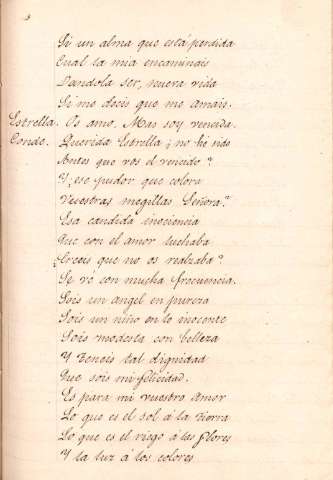 Si un alma que está perdida
Cual la mia encaminais
Dandola ser, nueva vida
Si me decis que me amais.
Estrella. Os amo. Mas soy vencida.
Conde. Querida Estrella ¿no he sido
Antes que vos el vencido?
Y ¿ese pudor que colora
Vuestras megillas Señora?
Esa candida inociencia
Que con el amor luchaba
¿Creeis que no os realzaba?
Se vé con mucha frecuencia.
Sois un angel en pureza
Sois un niño en lo inocente
Sois modesta con belleza
Y teneis tal dignidad
Que sois mi felicidad.
Es para mi vuestro amor
Lo que es el sol á la tierra
Lo que es el riego á las flores
Y la luz á los colores